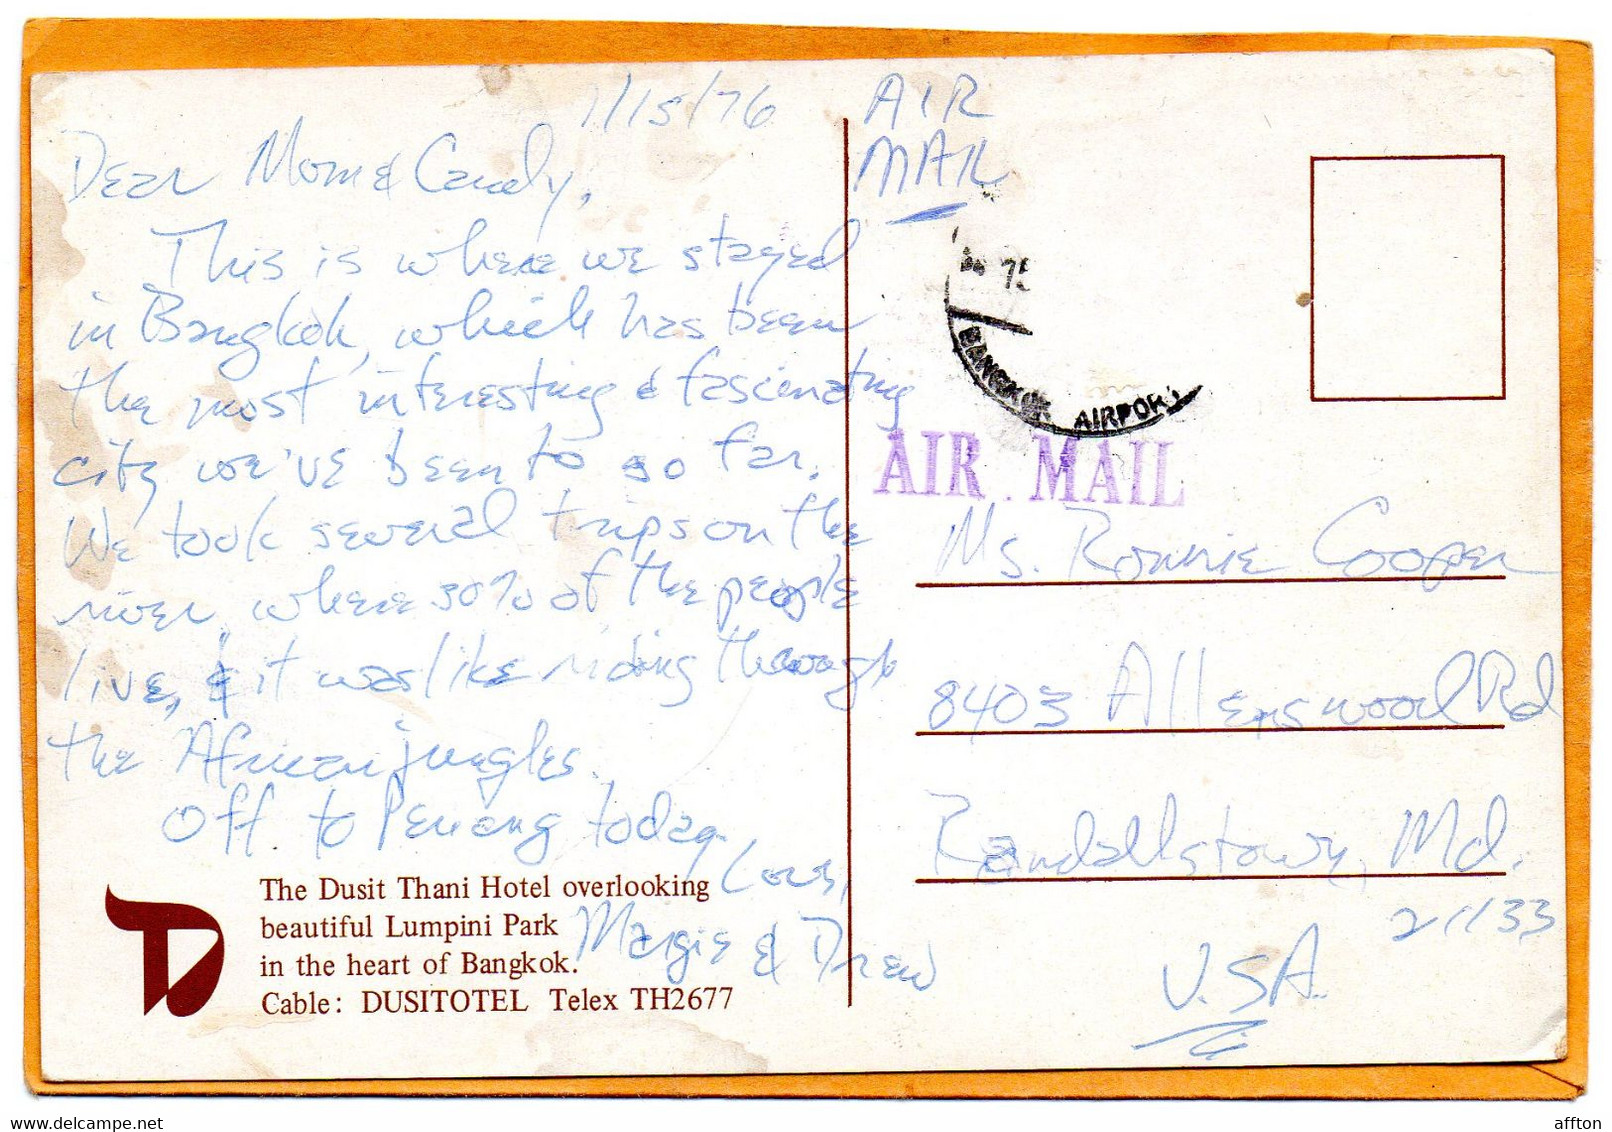 1/15/76
Dear Mom & Candy,
This is where we stayed
in Bangkok, which has been
the most interesting & fascinating
city we've been to so far.
We took several trips on the
river, where 30% of the people
live, & it was like riding through
the African jungles.
Off to Penang today.
Love,
Margie & Drew
The Dusit Thani Hotel overlooking
beautiful Lumpini Park
in the heart of Bangkok.
Cable: DUSITOTEL Telex TH2677
AIR
MAIL
75
BANGKOK AIRPORT
AIR MAIL
Ms. Ronnie Cooper
8403 Allenswood Rd
Randallstown, Md.
21133
U.S.A.
delcampe.net
affton